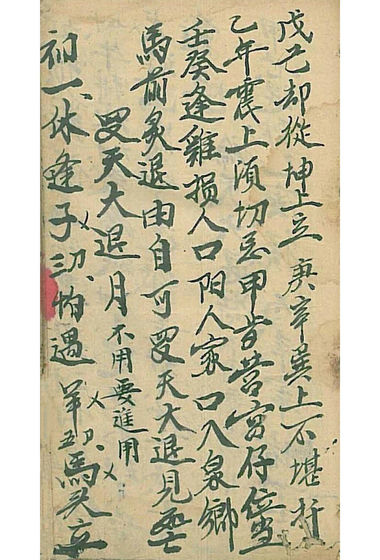 戊己却從坤上立庚辛巽上不堪行
乙年震上須切忌甲皆营宮仔位
壬癸逢雞损人口阳人家口入泉鄉
馬前炙退由自可罗天大退見
罗天大退月不用要進用
初一休逢子三怕遇羊五馬头立